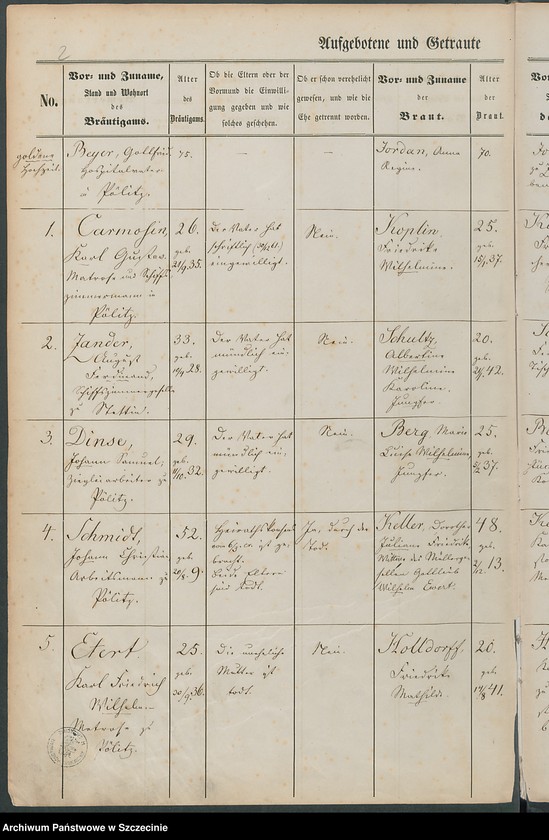 2
Aufgebotene und Getraute
No.
Vor- und Zuname,
Stand und Wohnort
des
Bräutigams.
Alter
des
Bräutigams.
Ob die Eltern oder der
Vormund die Einwilli-
gung gegeben und wie
solches geschehen.
Ob er schon verehelicht
gewesen, und wie die
Ehe getrennt worden.
Vor- und Zuname
der
Braut.
Alter
der
Braut.
goldene
Hochzeit.
Beyer, Gottfried
Hospitalvater
Pölitz.
75.
—
—
Jordan, Anna
Regine.
70.
1.
Carmosin,
Karl Gustav.
Matrose und Schiffs
zimmermann
Pölitz.
26.
geb.
35.
Der Vater hat
schriftlich
eingewilligt.
Nein.
Koplin,
Friedrike
Wilhelmine.
25.
geb.
37.
2.
Zander,
August
Ferdinand,
Schiffszimmergeselle
zu Stettin.
33.
geb.
28.
Der Vater hat
mündlich ein-
gewilligt.
Nein.
Schultz,
Albertine
Wilhelmine
Karoline.
Jungfer.
20.
geb.
42.
3.
Dinse,
Johann Samuel,
Ziegleiarbeiter zu
Pölitz.
29.
geb.
32.
Der Vater hat
mündlich ein-
gewilligt.
Nein.
Berg, Marie
Luise Wilhelmine,
Jungfer.
25.
geb.
37.
4.
Schmidt,
Johann Christian
Arbeitsmann zu
Pölitz.
52.
geb.
9.
Heirathskonsens
ist ge-
bracht.
Beide Eltern
sind todt.
Ja, durch den
Tod.
Keller, Dorothe
Juliane Friedrike
Wittwe des Müllerge-
sellen Gottlieb
Wilhelm
48.
geb.
13.
5.
Etert
Karl Friedrich
Wilhelm
Matrose zu
Pölitz.
25.
geb.
36.
Die uneheliche
Mutter ist
todt.
Nein.
Holldorff
Friedrike
Mathilde.
geb.
41.
Archiwum Państwowe w Szczecinie